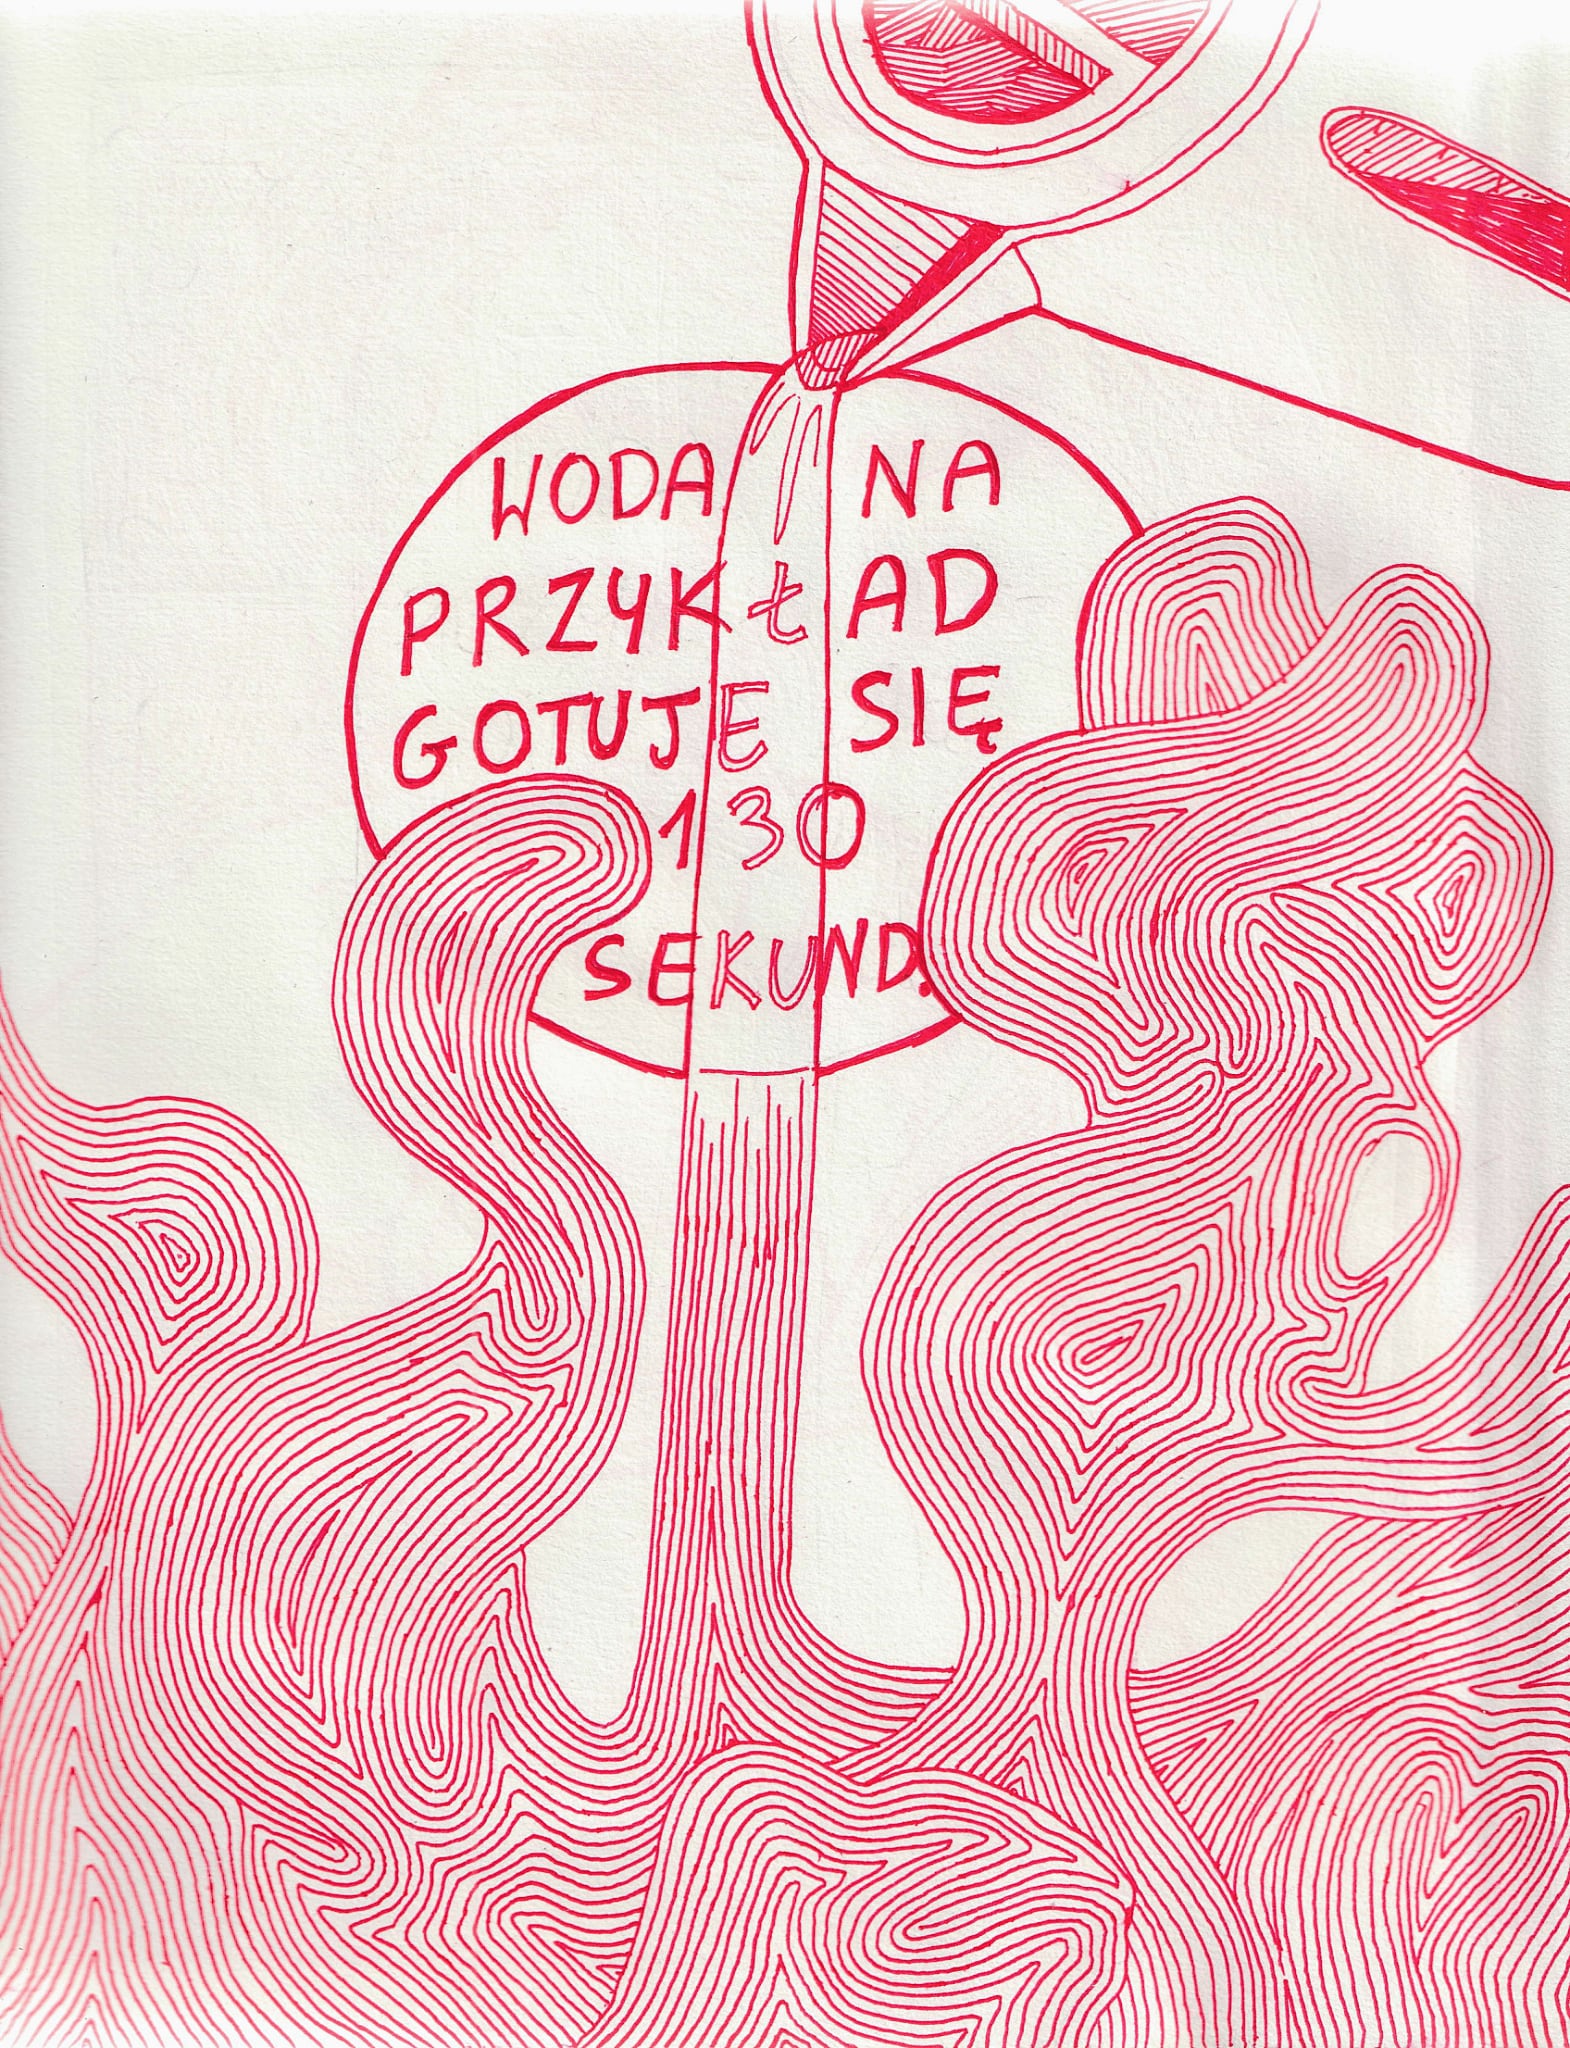 WODA NA
PRZYKŁAD
GOTUJE SIĘ
130
SEKUND.